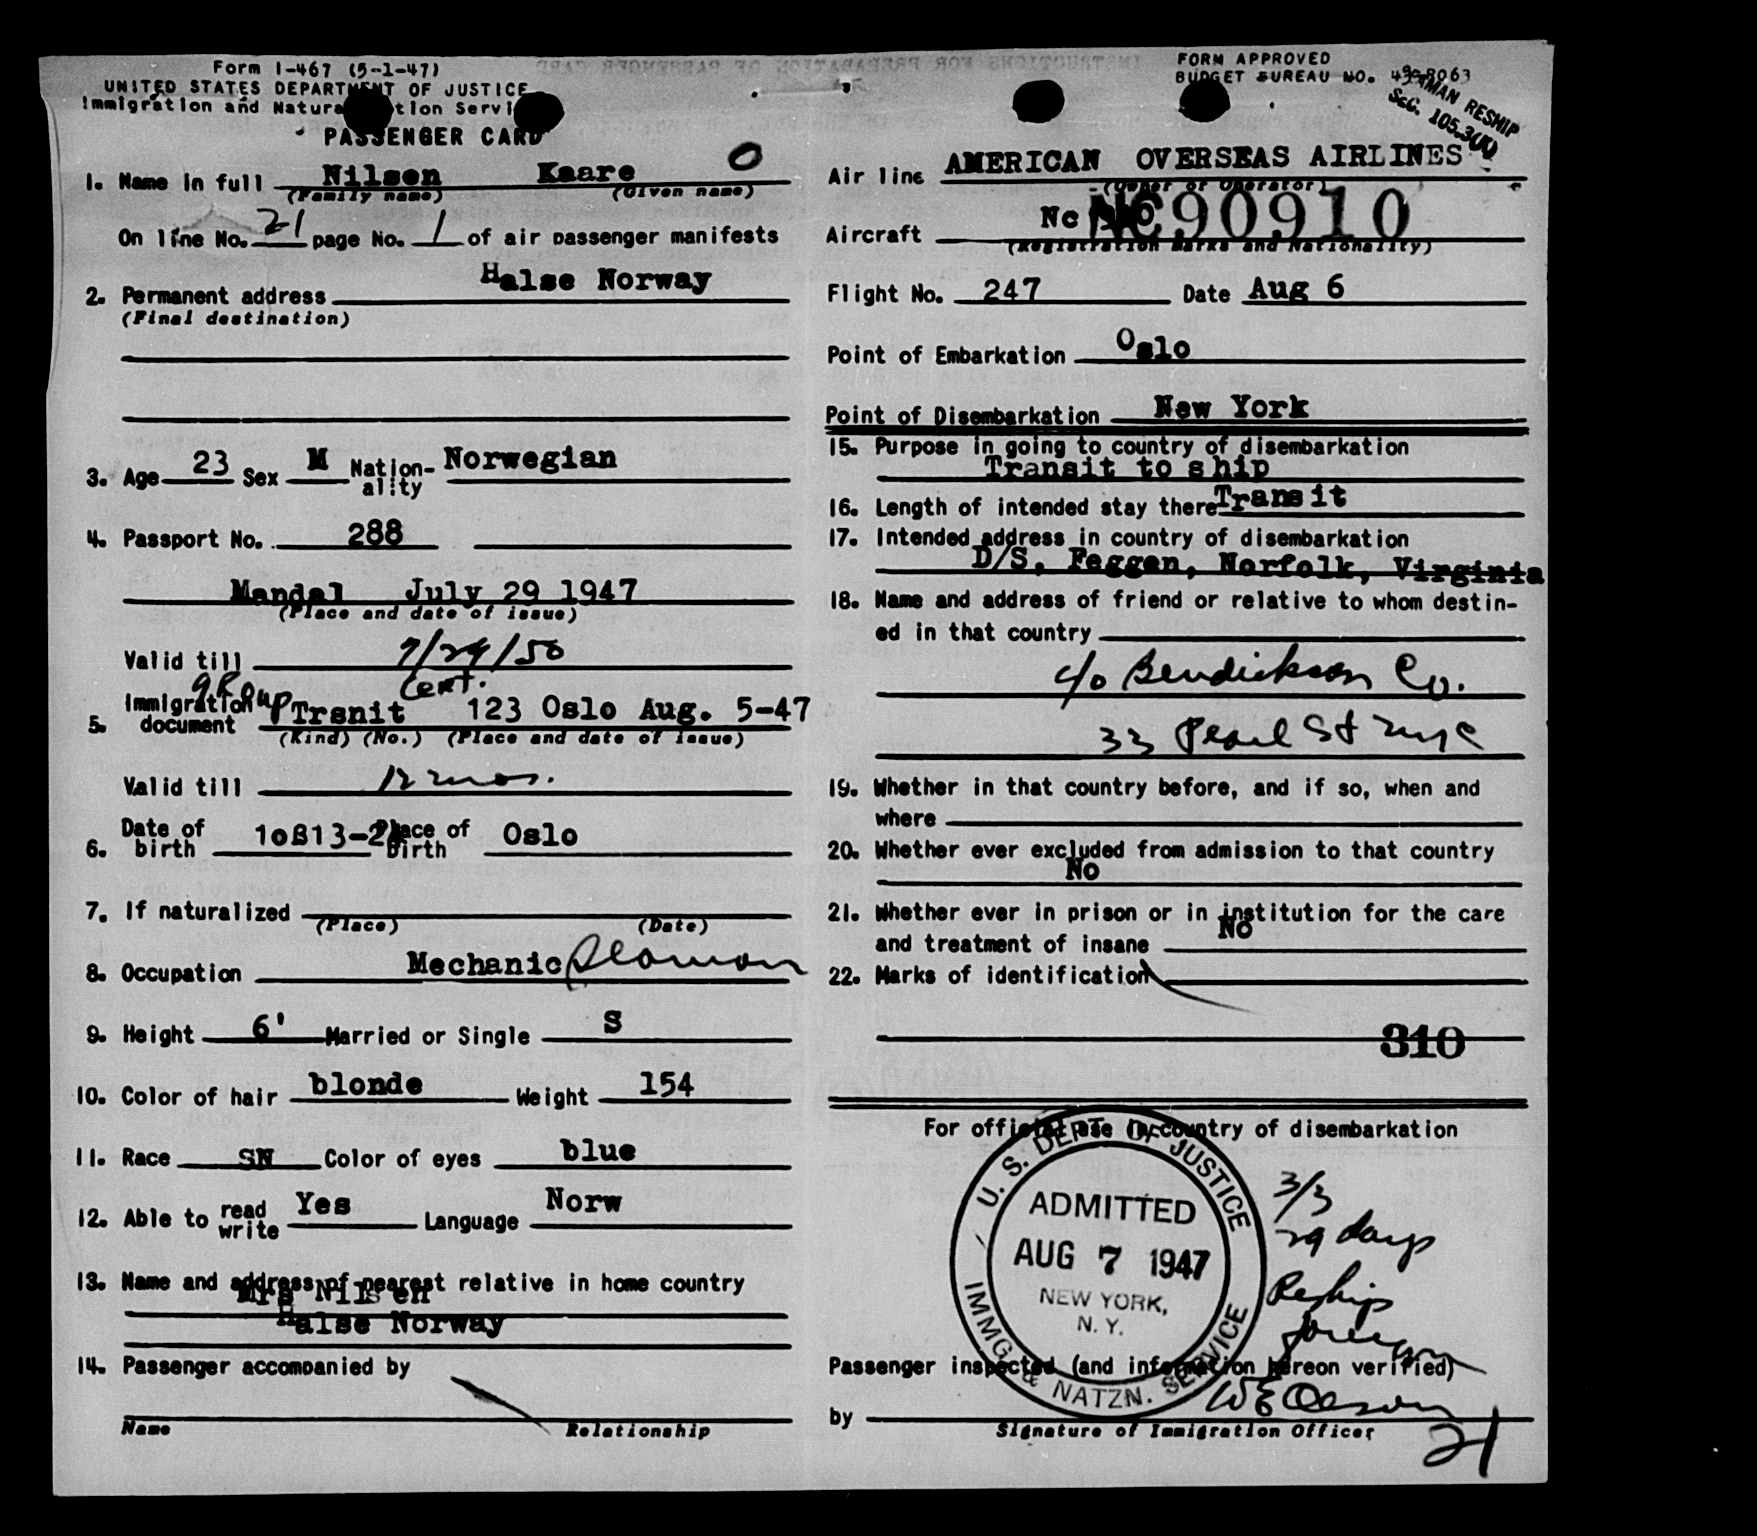 Form I-467 (5-1-47)
UNITED STATES DEPARTMENT OF JUSTICE
Immigration and Naturalization Service
PASSENGER CARD
1. Name in full Nilsen Kaare O
(Family name) (Given name)
On line No. 21 page No. 1 of air passenger manifests
2. Permanent address Halse Norway
(Final destination)
3. Age 23 Sex M Nationality Norwegian
4. Passport No. 288
Mandal July 29 1947
(Place and date of issue)
Valid till 7/29/50
group Cert.
5. Immigration document Trsnit 123 Oslo Aug. 5-47
(Kind) (No.) (Place and date of issue)
Valid till 12 mos.
6. Date of birth Place of Birth Oslo
7. If naturalized
(Place) (Date)
8. Occupation Mechanic Seaman
9. Height 6' Married or Single S
10. Color of hair blonde Weight 154
11. Race SN Color of eyes blue
12. Able to read write Yes Language Norw
13. Name and address of nearest relative in home country
Mrs Nilsen
Halse Norway
14. Passenger accompanied by
Name Relationship
FORM APPROVED
BUDGET BUREAU NO.
RESHIP
SEC. 105.3
Air line AMERICAN OVERSEAS AIRLINES
(Owner or Operator)
Aircraft Nc NC90910
(Registration Marks and Nationality)
Flight No. 247 Date Aug 6
Point of Embarkation Oslo
Point of Disembarkation New York
15. Purpose in going to country of disembarkation
Transit to ship
16. Length of intended stay there Transit
17. Intended address in country of disembarkation
D/S. Feggen, Norfolk, Virginia
18. Name and address of friend or relative to whom destin-
ed in that country
c/o Bendickson Co.
33 Pearl St NYC
19. Whether in that country before, and if so, when and
where
20. Whether ever excluded from admission to that country
No
21. Whether ever in prison or in institution for the care
and treatment of insane No
22. Marks of identification
310
For official use in country of disembarkation
U. S. DEPT. OF JUSTICE
ADMITTED
AUG 7 1947
NEW YORK,
N. Y.
IMMG. & NATZN. SERVICE
3/3
29 days
Reship
foreign
Passenger inspected (and information hereon verified)
by W E Olson
Signature of Immigration Officer
21